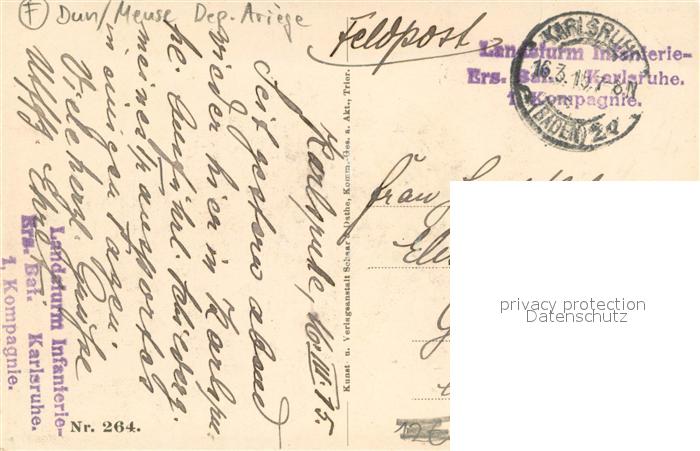 Ⓕ Dun/Meuse Dep. Ariège
Feldpost
Landsturm Infanterie-
Ers. Bat. Karlsruhe.
1. Kompagnie.
KARLSRUHE
16.3.15. 7-8 N
(BADEN) 2
Karlsruhe, 16. III. 15.
Seit gestern abend
wieder hier in Karlsru-
he. Ausführl.
meines Transportes
in einigen Tagen.
Vielherzl. Grüße
Frau
Landsturm Infanterie-
Ers. Bat. Karlsruhe.
1. Kompagnie.
Nr. 264.
Kunst- u. Verlagsanstalt Schaar & Dathe, Komm.-Ges. a. Akt., Trier.
privacy protection
Datenschutz